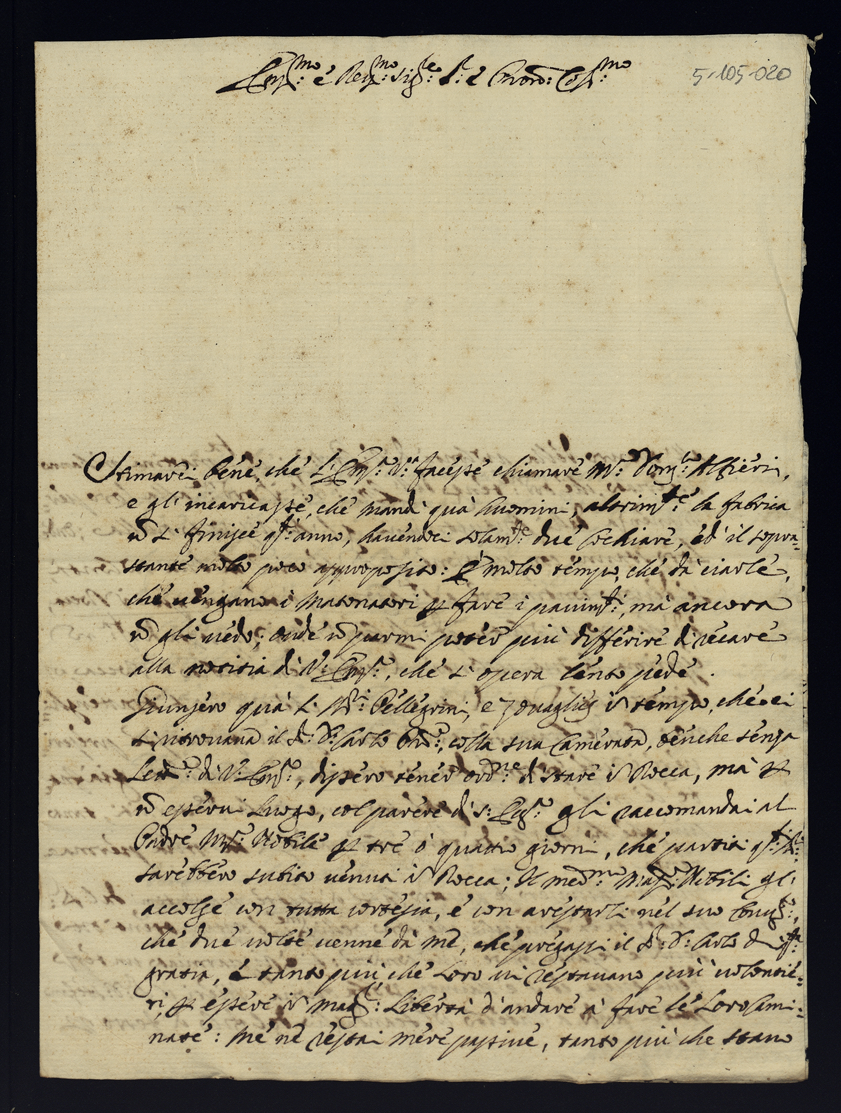 Em.mo e Rev.mo Sig.re S.r e Pron: Col.mo
5-105-020
Stimarei bene, che l'Em.a V.a facesse chiamare M.ro Dom.co Alfieri,
e gli incaricasse, che mandi quà huomini, altrim.te la fabrica
nõ si finisce q.st'anno, havendoci solam.te due Cochiare, ed il sopra=
stante molto poco approposito: È molto tempo, che dà ciarle,
che vengano i Matonatori p fare i pavim.ti, mà ancora
nõ gli vedo; onde nõ parmi poter più differire di recare
alla notitia di V. Em.a, che si opera lento piede.
Giunsero quà li SS.ri Pellegrini, e Zovaglij in tempo, che ci
si ritrovava il S.r D. Carlo, colla sua Camerata, benche senza
Lett.a di V. Em.a, dissero tener ord.ne di stare in Rocca, mà p
nõ esservi Luogo, col parere di S. Ecc.a gli raccomandai al
Padre Nobile p tre ò quattro giorni, che partiti
sarebbero subito venuti in Rocca; Il med.mo Nobili gli
accolse con tutta cortesia, e con arrestarli nel suo
che due volte venne dà me, che pregassi il S.r D. Carlo di q.sta
gratia, e tanto più, che Loro vi restavano più volentie=
ri, p essere in mag.r Libertà d'andare à fare le Loro Cami=
nate: me ne restai mere passive, tanto più che stano